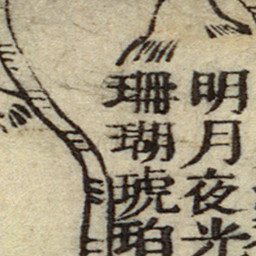 明月夜光
珊瑚琥珀